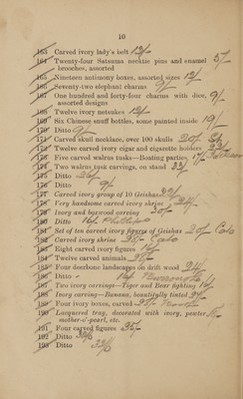 10
163 Carved ivory lady's belt 12/-
164 Twenty-four Satsuma necktie pins and enamel 5/-
brooches, assorted
165 Nineteen antimony boxes, assorted sizes 12/-
166 Seventy-two elephant charms 9/-
167 One hundred and forty-four charms with dice, 9/-
assorted designs
168 Twelve ivory netsukes 12/-
169 Six Chinese snuff bottles, some painted inside 19/-
170 Ditto 9/-
171 Carved skull necklace, over 100 skulls 20/-
172 Twelve carved ivory cigar and cigarette holders
173 Five carved walrus tusks—Boating parties 17/-
174 Two walrus tusk carvings, on stand
175 Ditto 26/-
176 Ditto 9/-
177 Carved ivory group of 10 Geishas
178 Very handsome carved ivory shrine
179 Ivory and boxwood carving 30/-
180 Ditto 16/-
181 Set of ten carved ivory figures of Geishas 20/-
182 Carved ivory shrine
183 Eight carved ivory figures
184 Twelve carved animals
185 Four deerhorn landscapes on drift wood
186 Ditto
187 Two ivory carvings—Tiger and Bear fighting 16/-
188 Ivory carving—Banana, beautifully tinted
189 Four ivory boxes, carved
190 Lacquered tray, decorated with ivory, pewter
mother-o'-pearl, etc.
191 Four carved figures
192 Ditto
193 Ditto